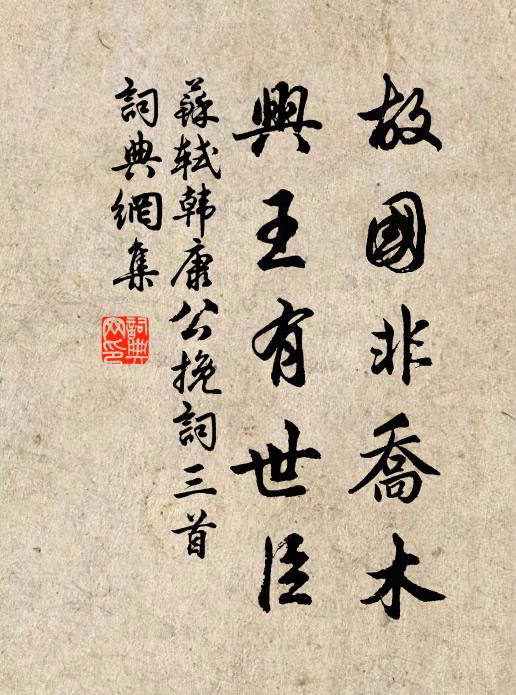 故國非喬木
興王有世臣
蘇軾韩康公挽詞三首
詞典網集
詞典網印